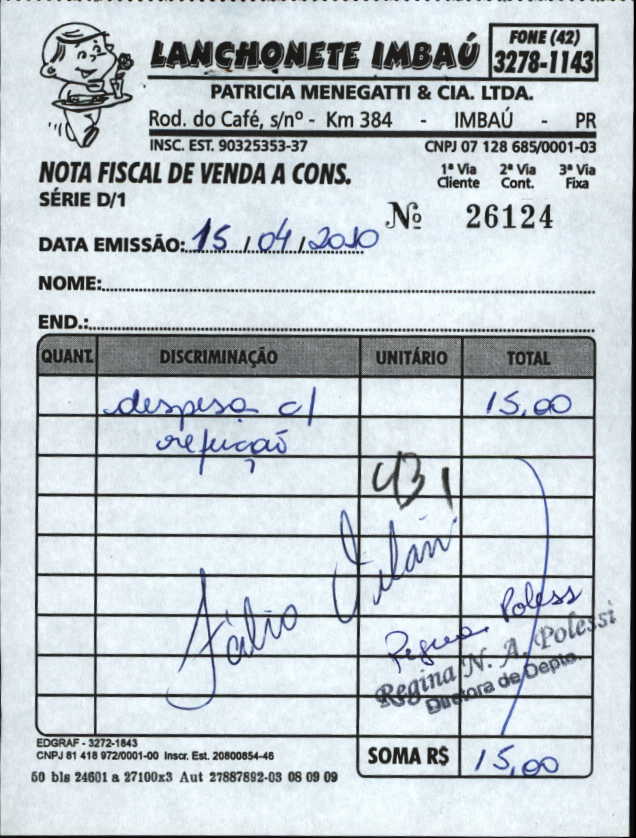 LANCHONETE IMBAÚ
FONE (42)
3278-1143
PATRICIA MENEGATTI & CIA. LTDA.
Rod. do Café, s/nº - Km 384 - IMBAÚ - PR
INSC. EST. 90325353-37 CNPJ 07 128 685/0001-03
NOTA FISCAL DE VENDA A CONS.
1ª Via Cliente 2ª Via Cont. 3ª Via Fixa
SÉRIE D/1
Nº 26124
DATA EMISSÃO: 15/04/2010
NOME:
END.:
QUANT. DISCRIMINAÇÃO UNITÁRIO TOTAL
despesa c/ 15,00
refeição
431
Fábio
Regina Poless
Regina N. A. Polessi
Diretora de Depto.
EDGRAF - 3272-1843
CNPJ 81 418 972/0001-00 Inscr. Est. 20800854-46
SOMA R$ 15,00
50 bls 24601 a 27100x3 Aut 27887892-03 08 09 09